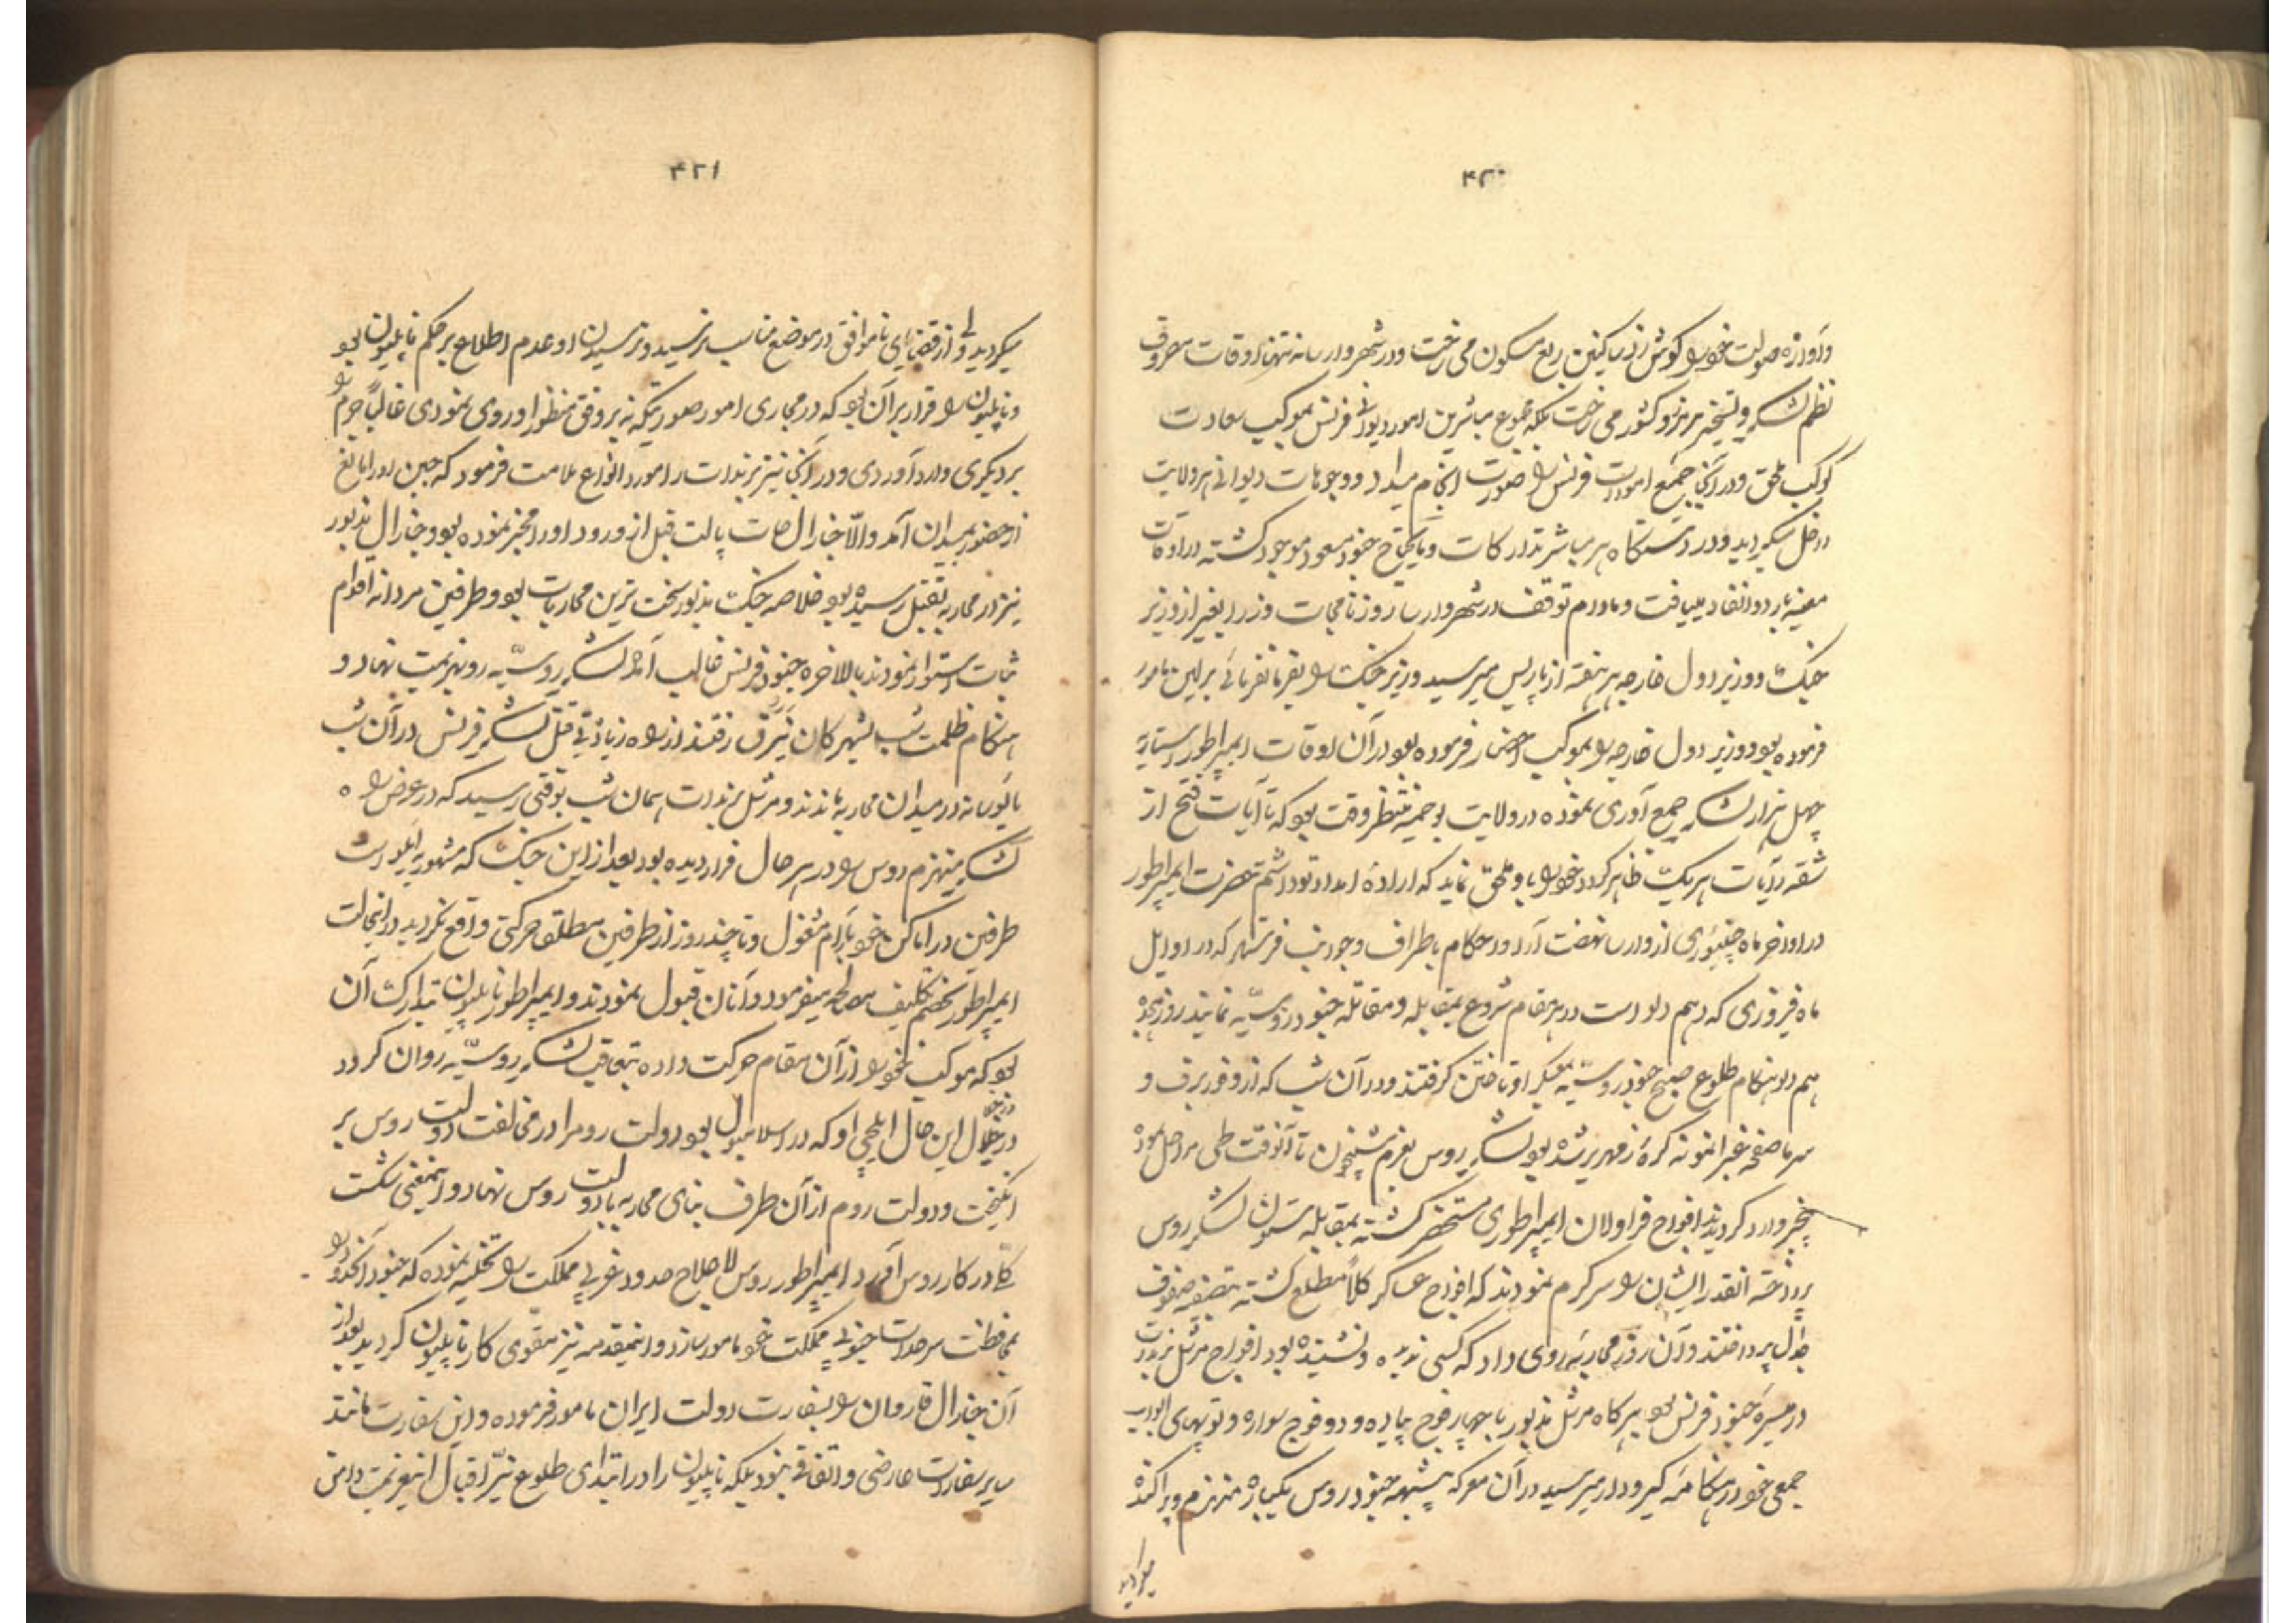 ۴۲۰
و آوازه صولت خود را گوش زد ساکنین ربع مسکون می ساخت و در شهر وارسا نه تنها اوقات مصروف
نظم لشکر و تسخیر مرز و کشور می ساخت بلکه مجموع مباشرین امور دیوان فرنس بموکب سعادت
کوکب ملحق و در آنجا جمیع امورات فرنس را صورت انجام میداد و وجوهات دیوانی هر ولایت
داخل میگردید و در دستگاه هر مباشر تدارکات و مایحتاج جنود مسعود موجود گشته در اوقات
معینه بار دو انفاد مییافت و مادام توقف در شهر وارسا روزنامجات وزرا بغیر از وزیر
جنگ و وزیر دول خارجه هر هفته از پاریس میرسید وزیر جنگ را بفرمانفرمائی برلین مامور
فرموده بود و وزیر دول خارجه را بموکب احضار فرموده بود در آن اوقات ایمپراطور استریه
چهل هزار لشکر جمع آوری نموده در ولایت بوخمیه منتظر وقت بود که تا آیات فتح از
شقه رایات هر یک ظاهر گردد خود را باو ملحق نماید که اراده امداد تو داشتم حضرت ایمپراطور
در اواخر ماه جنیوری از وارسا نهضت آرا و احکام باطراف و جوانب فرستاد که در اوایل
ماه فیروری که دهم دلو است در هر مقام شروع بمقابله و مقاتله جنود روسیّه نمایند روز
هم دلو هنگام طلوع صبح جنود روسیّه بمعسکر او تاختن گرفتند و در آن شب که از وفور برف و
سرما صفحه غبرا نمونه کره زمهریر شده بود لشکر روس بعزم شبیخون تا آنوقت طی مراحل نموده
بیخبر وارد گردیدند افواج قراولان ایمپراطوری مستحضر گشته بمقابله ستون لشکر روس
پرداخته آنقدر ایشان را سرگرم نمودند که افواج عساکر کلاً مطلع گشته بتصفیه صفوف
جدال پرداختند و آن روز محاربه روی داد که کسی ندیده و نشنیده بود افواج مرشل برندات
در میسره جنود فرنس بود هرگاه مرشل مذبور با چهار فوج پیاده و دو فوج سواره و توپهای
جمعی خود در هنگامه گیر و دار میرسید در آن معرکه بیشبهه جنود روس یکباره منهزم و پراکنده
میگردید
۴۲۱
میگردید ولی از قضای ناموافق در موضع مناسب نرسید و نرسیدن او عدم اطلاع بر حکم ناپلیون بود
و ناپلیون را قرار بر آن بود که در مجاری امور صوریکه نه بر وفق منظر او روی نمودی غالباً جرم را
بر دیگری وارد آوردی و در آنجا نیز برندات را مورد انواع ملامت فرمود که جبن او را مانع
از حضور بمیدان آمد والّا جنرال هات پالت قبل از ورود او را مخبر نموده بود و جنرال مذبور
نیز در محاربه بقتل رسیده بود خلاصه جنگ مذبور سخت ترین محاربات بود و طرفین مردانه اقدام
ثبات استوار نمودند بالاخره جنود فرنس غالب آمد لشکر روسیّه رو بهزیمت نهاد و
هنگام ظلمت شب بشهر کان نیزبرق رفتند از راه زیادتی قتل لشکر فرنس در آن شب
مایوسانه در میدان محاربه ماندند و مرشل برندات همان شب بوقتی رسید که در عرض راه
لشکر منهزم روس را در هر حال فرار دیده بود بعد از این جنگ که مشهور به ایلو است
طرفین در اماکن خود بآرام مشغول و تا چند روز از طرفین مطلق حرکتی واقع نگردید در آنحالت
ایمپراطور بخصم تکلیف مصالحه میفرمود و آنان قبول ننمودند و ایمپراطور ناپلیون بتدارک آن
بود که موکب خود را از آن مقام حرکت داده بتعاقب لشکر روسیّه روان گردد
در خلال این حال ایلچی او که در اسلامبول بود دولت روم را در مخالفت دولت روس بر
انگیخت و دولت روم از آن طرف بنای محاربه با دولت روس نهاد و اینمعنی شکست
کلّا در کار روس آورد ایمپراطور روس لاعلاج حدود غربی مملکت را تخلیه نموده که جنود آنحدود را
بمحافظت سرحدات جنوبی مملکت خود مامور سازد و اینمقدمه نیز مقوّی کار ناپلیون گردید بعد از
آن جنرال قاردان را بسفارت دولت ایران مامور فرموده و این سفارت مانند
سایر سفارات عارضی و اتفاقی نبود بلکه ناپلیون را در ابتدای طلوع نیّر اقبال این عزیمت دامن